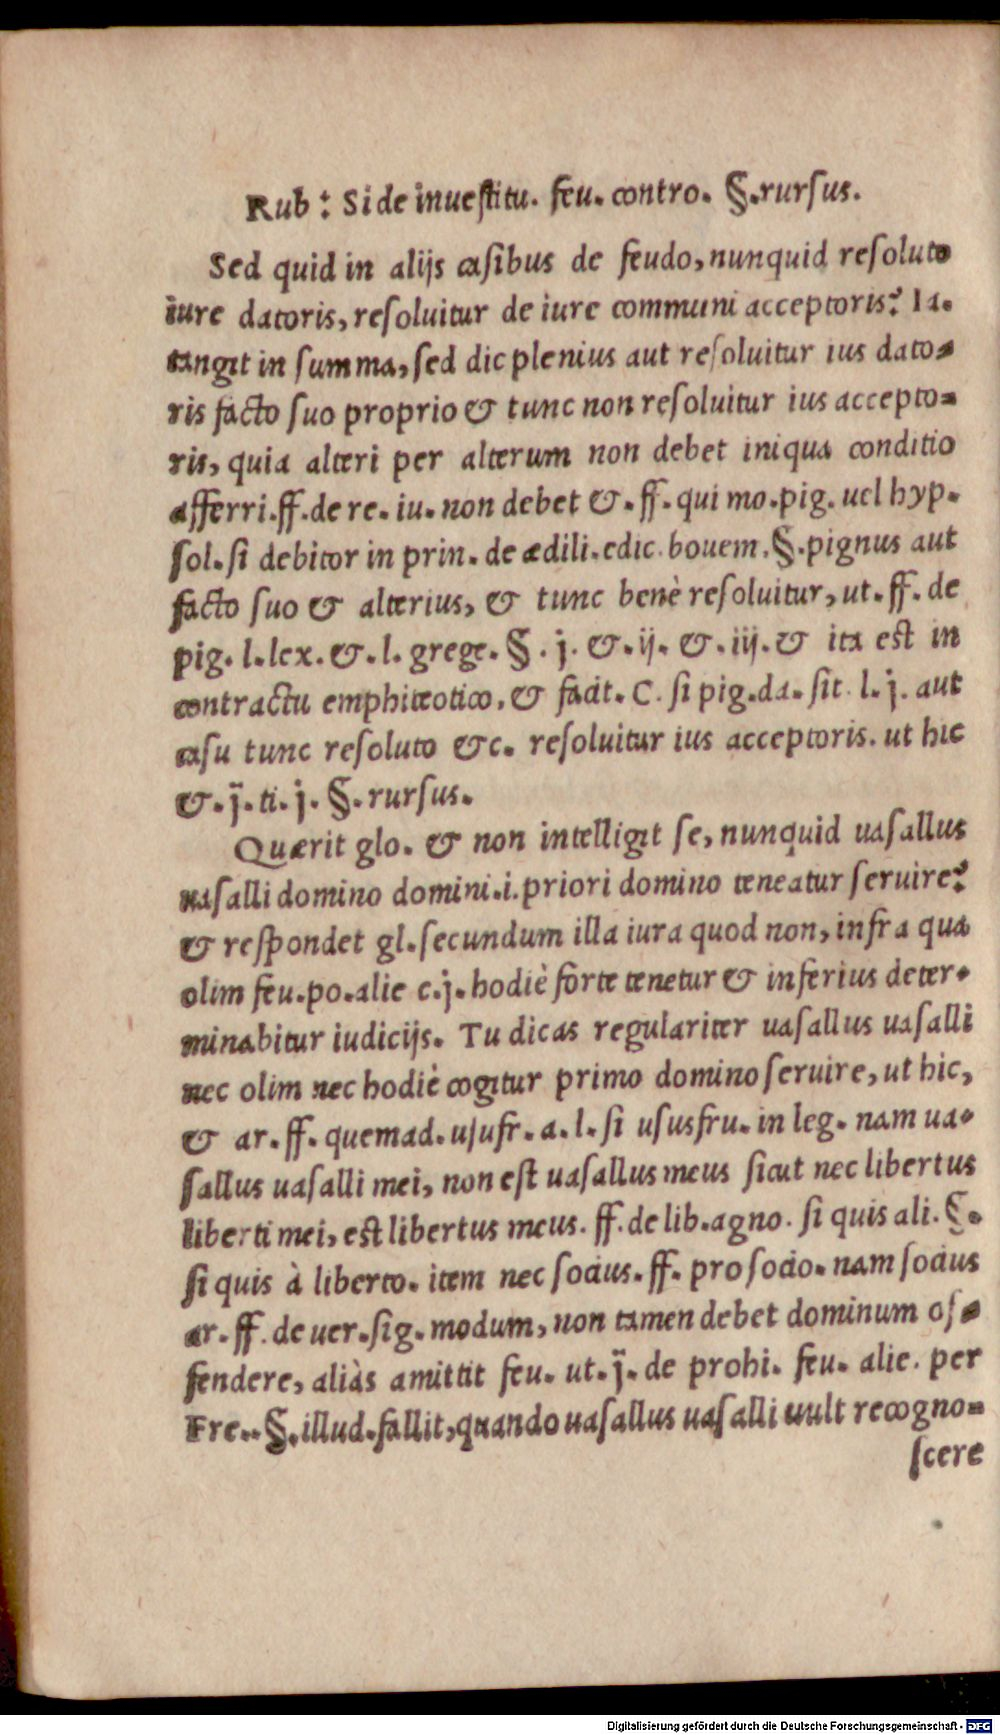 Rub: Si de inuestitu. feu. contro. §. rursus.
Sed quid in alijs casibus de feudo, nunquid resoluto
iure datoris, resoluitur de iure communi acceptoris? Ia.
tangit in summa, sed dic plenius aut resoluitur ius dato-
ris facto suo proprio & tunc non resoluitur ius accepto-
ris, quia alteri per alterum non debet iniqua conditio
afferri. ff. de re. iu. non debet &. ff. qui mo. pig. uel hyp.
sol. si debitor in prin. de ædili. edic. bouem. §. pignus aut
facto suo & alterius, & tunc benè resoluitur, ut. ff. de
pig. l. lex. &. l. grege. §. j. &. ij. &. iij. & ita est in
contractu emphiteotico. & facit. C. si pig. da. sit. l. j. aut
casu tunc resoluto &c. resoluitur ius acceptoris. ut hic
&. j̄. ti. j. §. rursus.
Quærit glo. & non intelligit se, nunquid uasallus
uasalli domino domini .i. priori domino teneatur seruire?
& respondet gl. secundum illa iura quod non, infra qua
olim feu. po. alie c. j. hodiè forte tenetur & inferius deter-
minabitur iudicijs. Tu dicas regulariter uasallus uasalli
nec olim nec hodiè cogitur primo domino seruire, ut hic,
& ar. ff. quemad. usufr. a. l. si ususfru. in leg. nam ua-
sallus uasalli mei, non est uasallus meus sicut nec libertus
liberti mei, est libertus meus. ff. de lib. agno. si quis ali. §.
si quis à liberto. item nec socius. ff. pro socio. nam socius
ar. ff. de uer. sig. modum, non tamen debet dominum of-
fendere, aliàs amittit feu. ut. j̄. de prohi. feu. alie. per
Fre.. §. illud. fallit, quando uasallus uasalli uult recogno-
scere
Digitalisierung gefördert durch die Deutsche Forschungsgemeinschaft - DFG